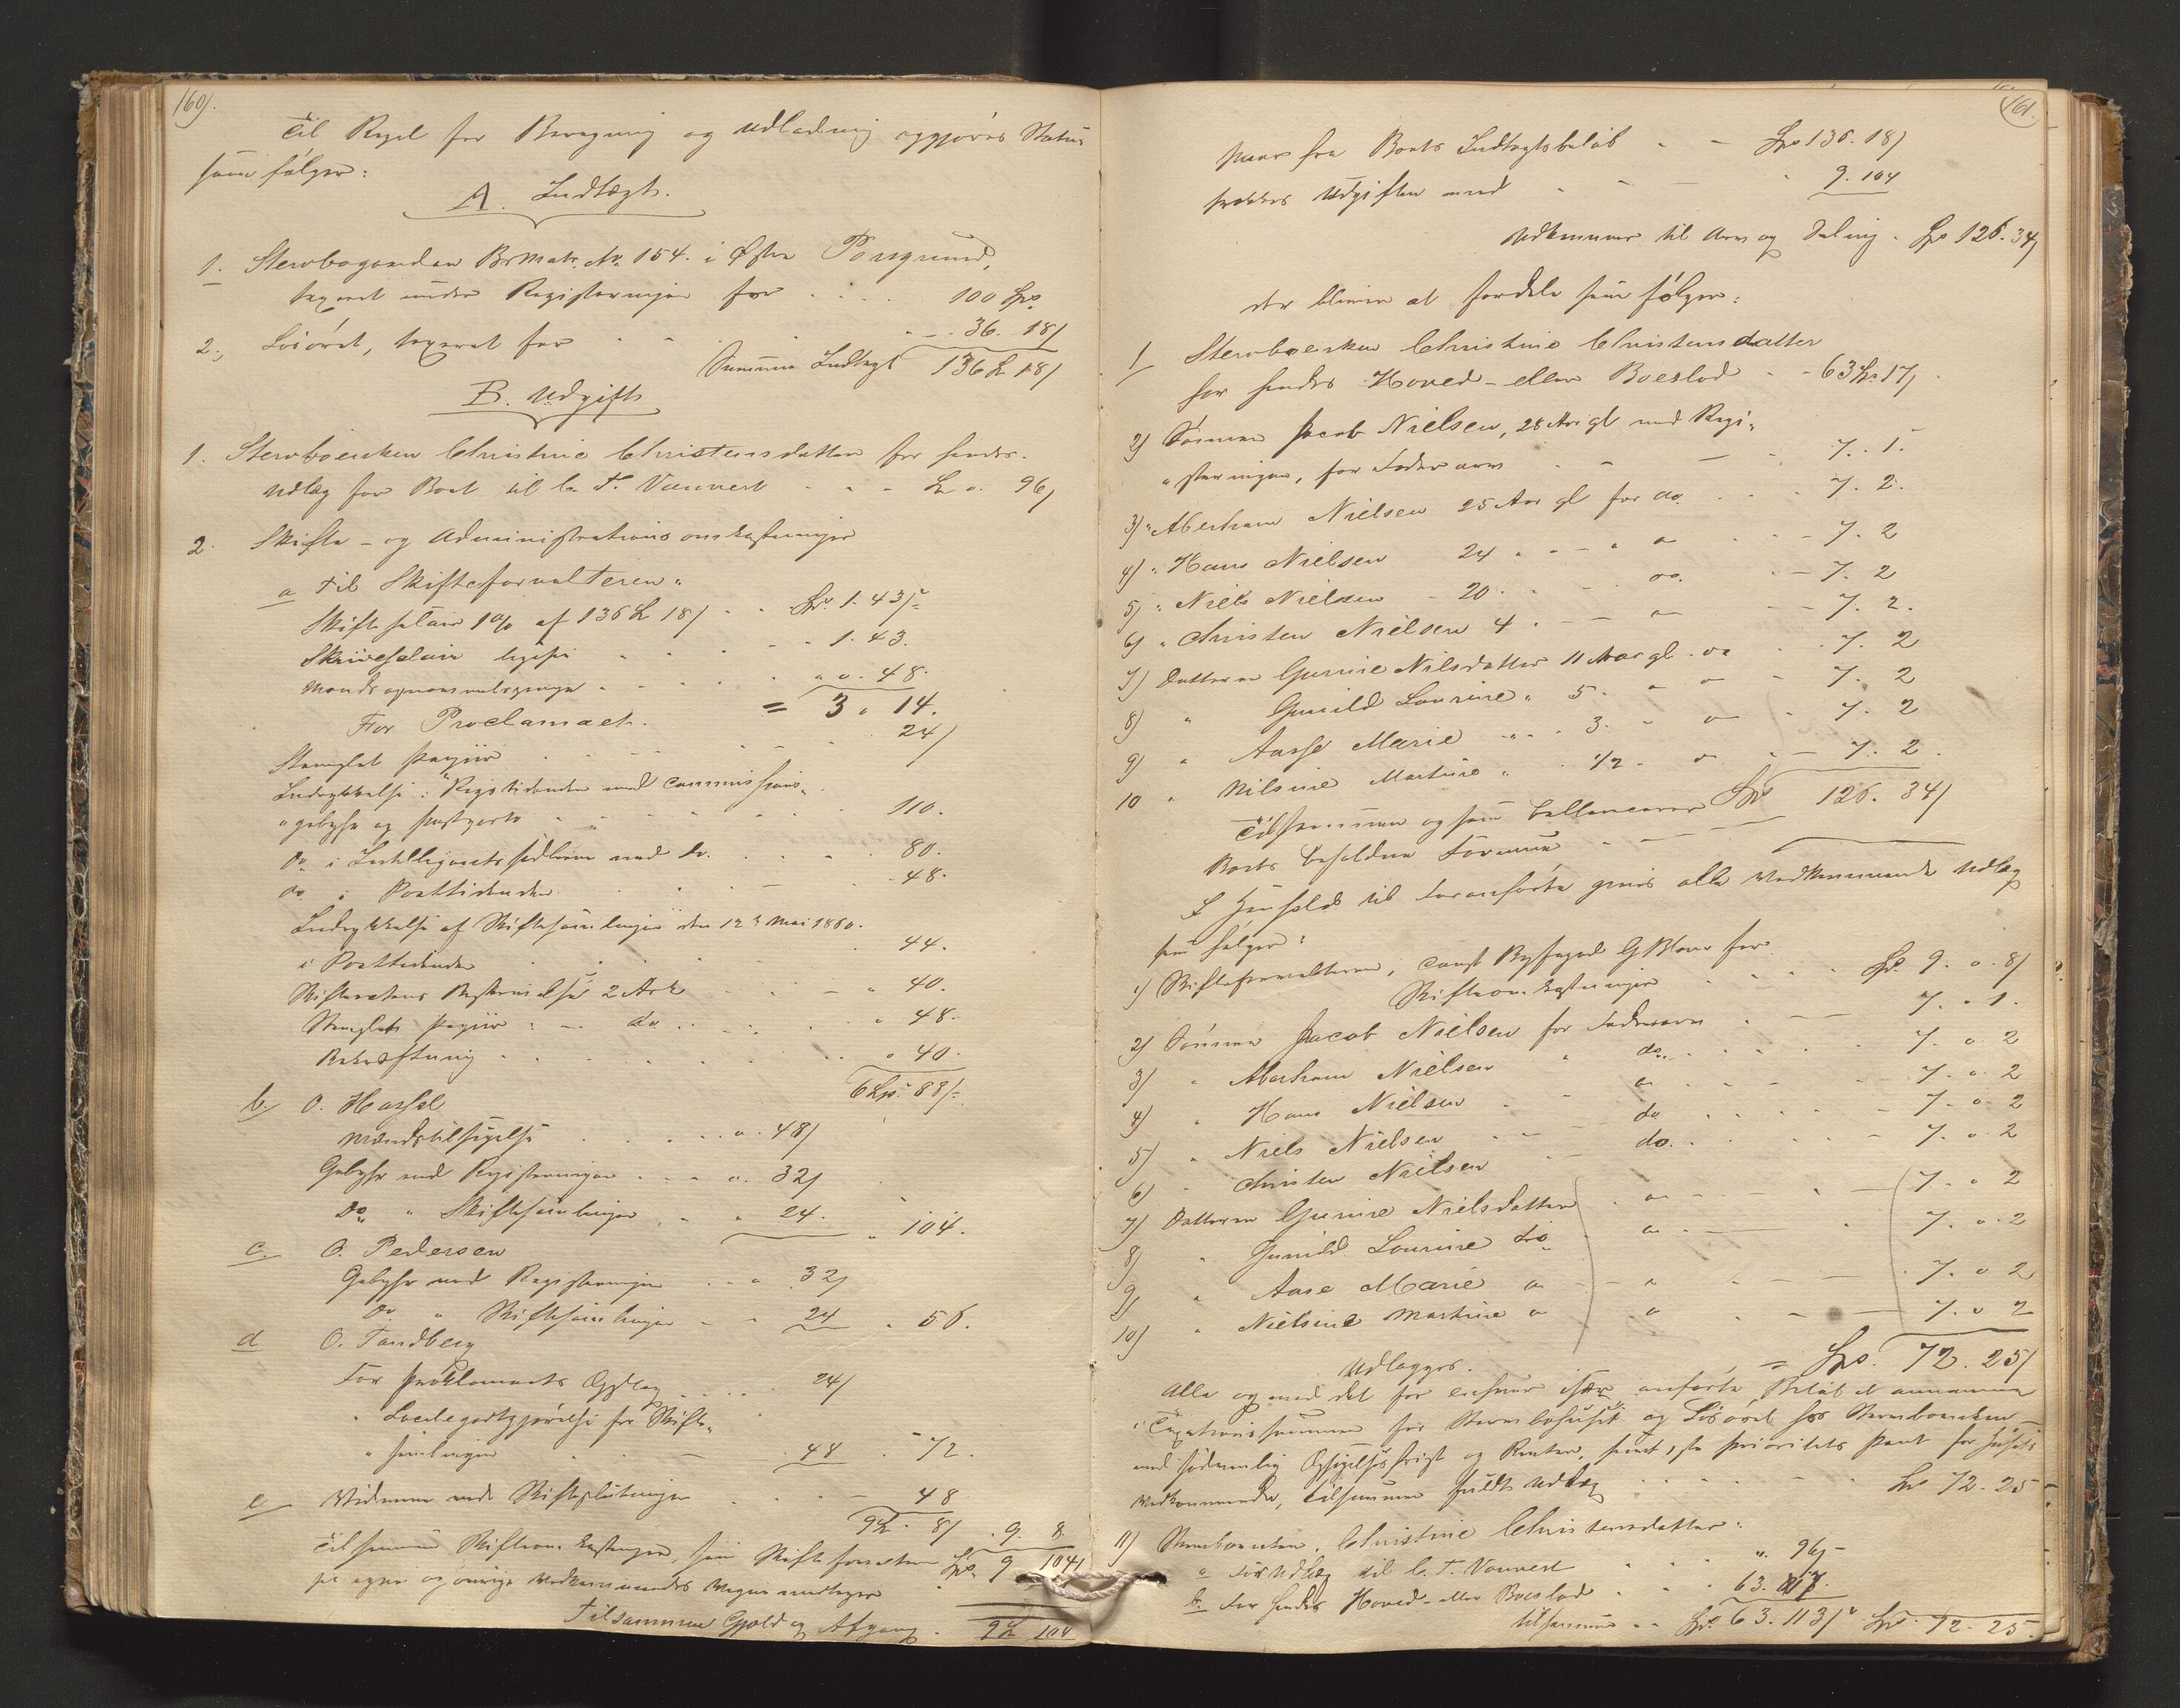 160).
Til Regel for Beregning og Udlodning opgjøres Status
som følger:
A. Indtægt.
1. Stervbogaarden Br Matr. No. 154. i Østre Porsgrund,
taxeret under Registeringen for .... 100 Spd.
2., Løsøret, taxeret for . . . . 36. 18/
Summa Indtægt 136 Spd 18/
B. Udgift
1. Stervboenken Christine Christensdatter for hendes
Udlæg for Boet til C. F. Vauvert . . . Spd „ 96/
2. Skifte- og Administrations omkostninger
a Til Skifteforvalteren.
Skiftesalair 1 % af 136 Spd 18/ . . Spd 1. 43/
Skriversalair ligesaa . . . . 1. 43.
. . . . „ „. 48.
= 3 „ 14.
For Proclamaet.
Stemplet Papiir . . . . 24/
Indrykkelse i Rigstidenden med Commissions„
„gebyhr og Postporto . . . . 110.
Do. i Intelligentssedlerne med do. . . . 80.
do i Posttidenden . . . 48.
Indrykkelse af Skiftesamlingen den 12te Mai 1860.
i Posttidenden . . . . 44.
Skifteactens Beskrivelse 2 Ark . . . „ 40.
Stemplet Papiir : — do . . . . „ 48.
Bekræftning . . . . „ 40.
6 Spd. 88/
b. O. Hassel
Mændstilsigelse . . . . „. 48/
Gebyhr ved Registeringen . . . „. 32/
Do „ Skiftesamlingen . . 24. „ 104.
c. O. Pedersen
Gebyhr ved Registeringen . . „ 32/
do. „ Skiftesamlingen . . 24 „ 56.
d O. Tandberg
For Proklamaets Oplæg . . . . 24/
„ Localegodtgjørelse for Skifte„
„samlingen . . . 48 . „ 72.
e Vidnerne ved Skifteslutningen . . . 48
9 Spd. 8/ . 9. 8
Tilsammen Skifteomkostninger, som Skifteforvalteren
paa egne og øvrige Vedkommendes Vegne modtager Spd. 9 104/
Tilsammen Gjæld og Afgang . 9 Spd 104
161.
Naar fra Boets Indtægtsbeløb . . Spd 136. 18/
trækkes Udgiften med . . . . 9. 104
Udkommer til Arv og Deling . Spd 126. 34/
der bliver at fordele som følger:
1/ Stervboenken Christine Christensdatter
for hendes Hoved- eller Boeslod . . 63 Spd 17/
2) Sønnen Jacob Nielsen, 28 Aar gl ved Regi„
„steringen, for Fædrearv . . . . 7. . 1.
3) „ Abraham Nielsen 25 Aar gl for do . . . 7. 2.
4) „ Hans Nielsen 24 „ . . „ „ . . . 7. 2
5) „ Niels Nielsen - 20. . . . do. . . 7. 2
6) „ Christen Nielsen 4 . . . „ . . 7. 2.
7) Datteren Gunine Nilsdatter 11 Aar gl. do . . 7. 2
8) „ Gunild Lourine „ 5. „ „ . 7. 2
9) „ Aasse Marie „ . . 3. „ „ . 7. 2
10 „ Nilsine Martine „ . 1/2 . „ . . 7. 2.
Tilsammen og som ballancerer Spd 126. 34/
Boets beholdne Formue . . .
I Henhold til Foranførte gives alle Vedkommende Udlæg
som følger:
1) Skifteforvalteren, const Byfoged G Blom for
Skifteomkostninger . . . . Spd. 9. „. 8/
2) Sønnen Jacob Nielsen for Fædrearv . . . 7. „ 1.
3) „ Abraham Nielsen „ do. . . . 7. „ 2
4) „ Hans Nielsen . „ „ . . . 7. „. 2
5) „ Niels Nielsen . . . do . . . 7. „ 2
6) „ Christen Nielsen . . do. . . . 7. „. 2
7) Datteren Gunine Nielsdatter . „ . . . 7. „ 2
8) „ Gunild Lourine do . „ . . . 7. „. 2
9) „ Aase Marie „ . . „ . . . 7. „ 2
10) „ Nielsine Martine „ „ . . 7. „ 2
= Spd. 72. 25/
Udlægges.
Alle og med det for enhver især anførte Beløb at annamme
i Taxationssummen for Stervbohuset og Løsøret hos Stervboenken
med sædvanlig Opsigelsesfrist og Renter, samt 1ste Prioritets Pant for Huset
Vedkommende, tilsammen fuldt Udlæg . . . . Spd 72. 25
11) Stervboenken, Christine Christensdatter:
a. for Udlæg til C. F. Vauvert . . . „. 96/-
b. For hendes Hoved- eller Boeslod . . . 63. 17.
tilsammen . . Spd. 63. 113/ Spd. 72. 25.